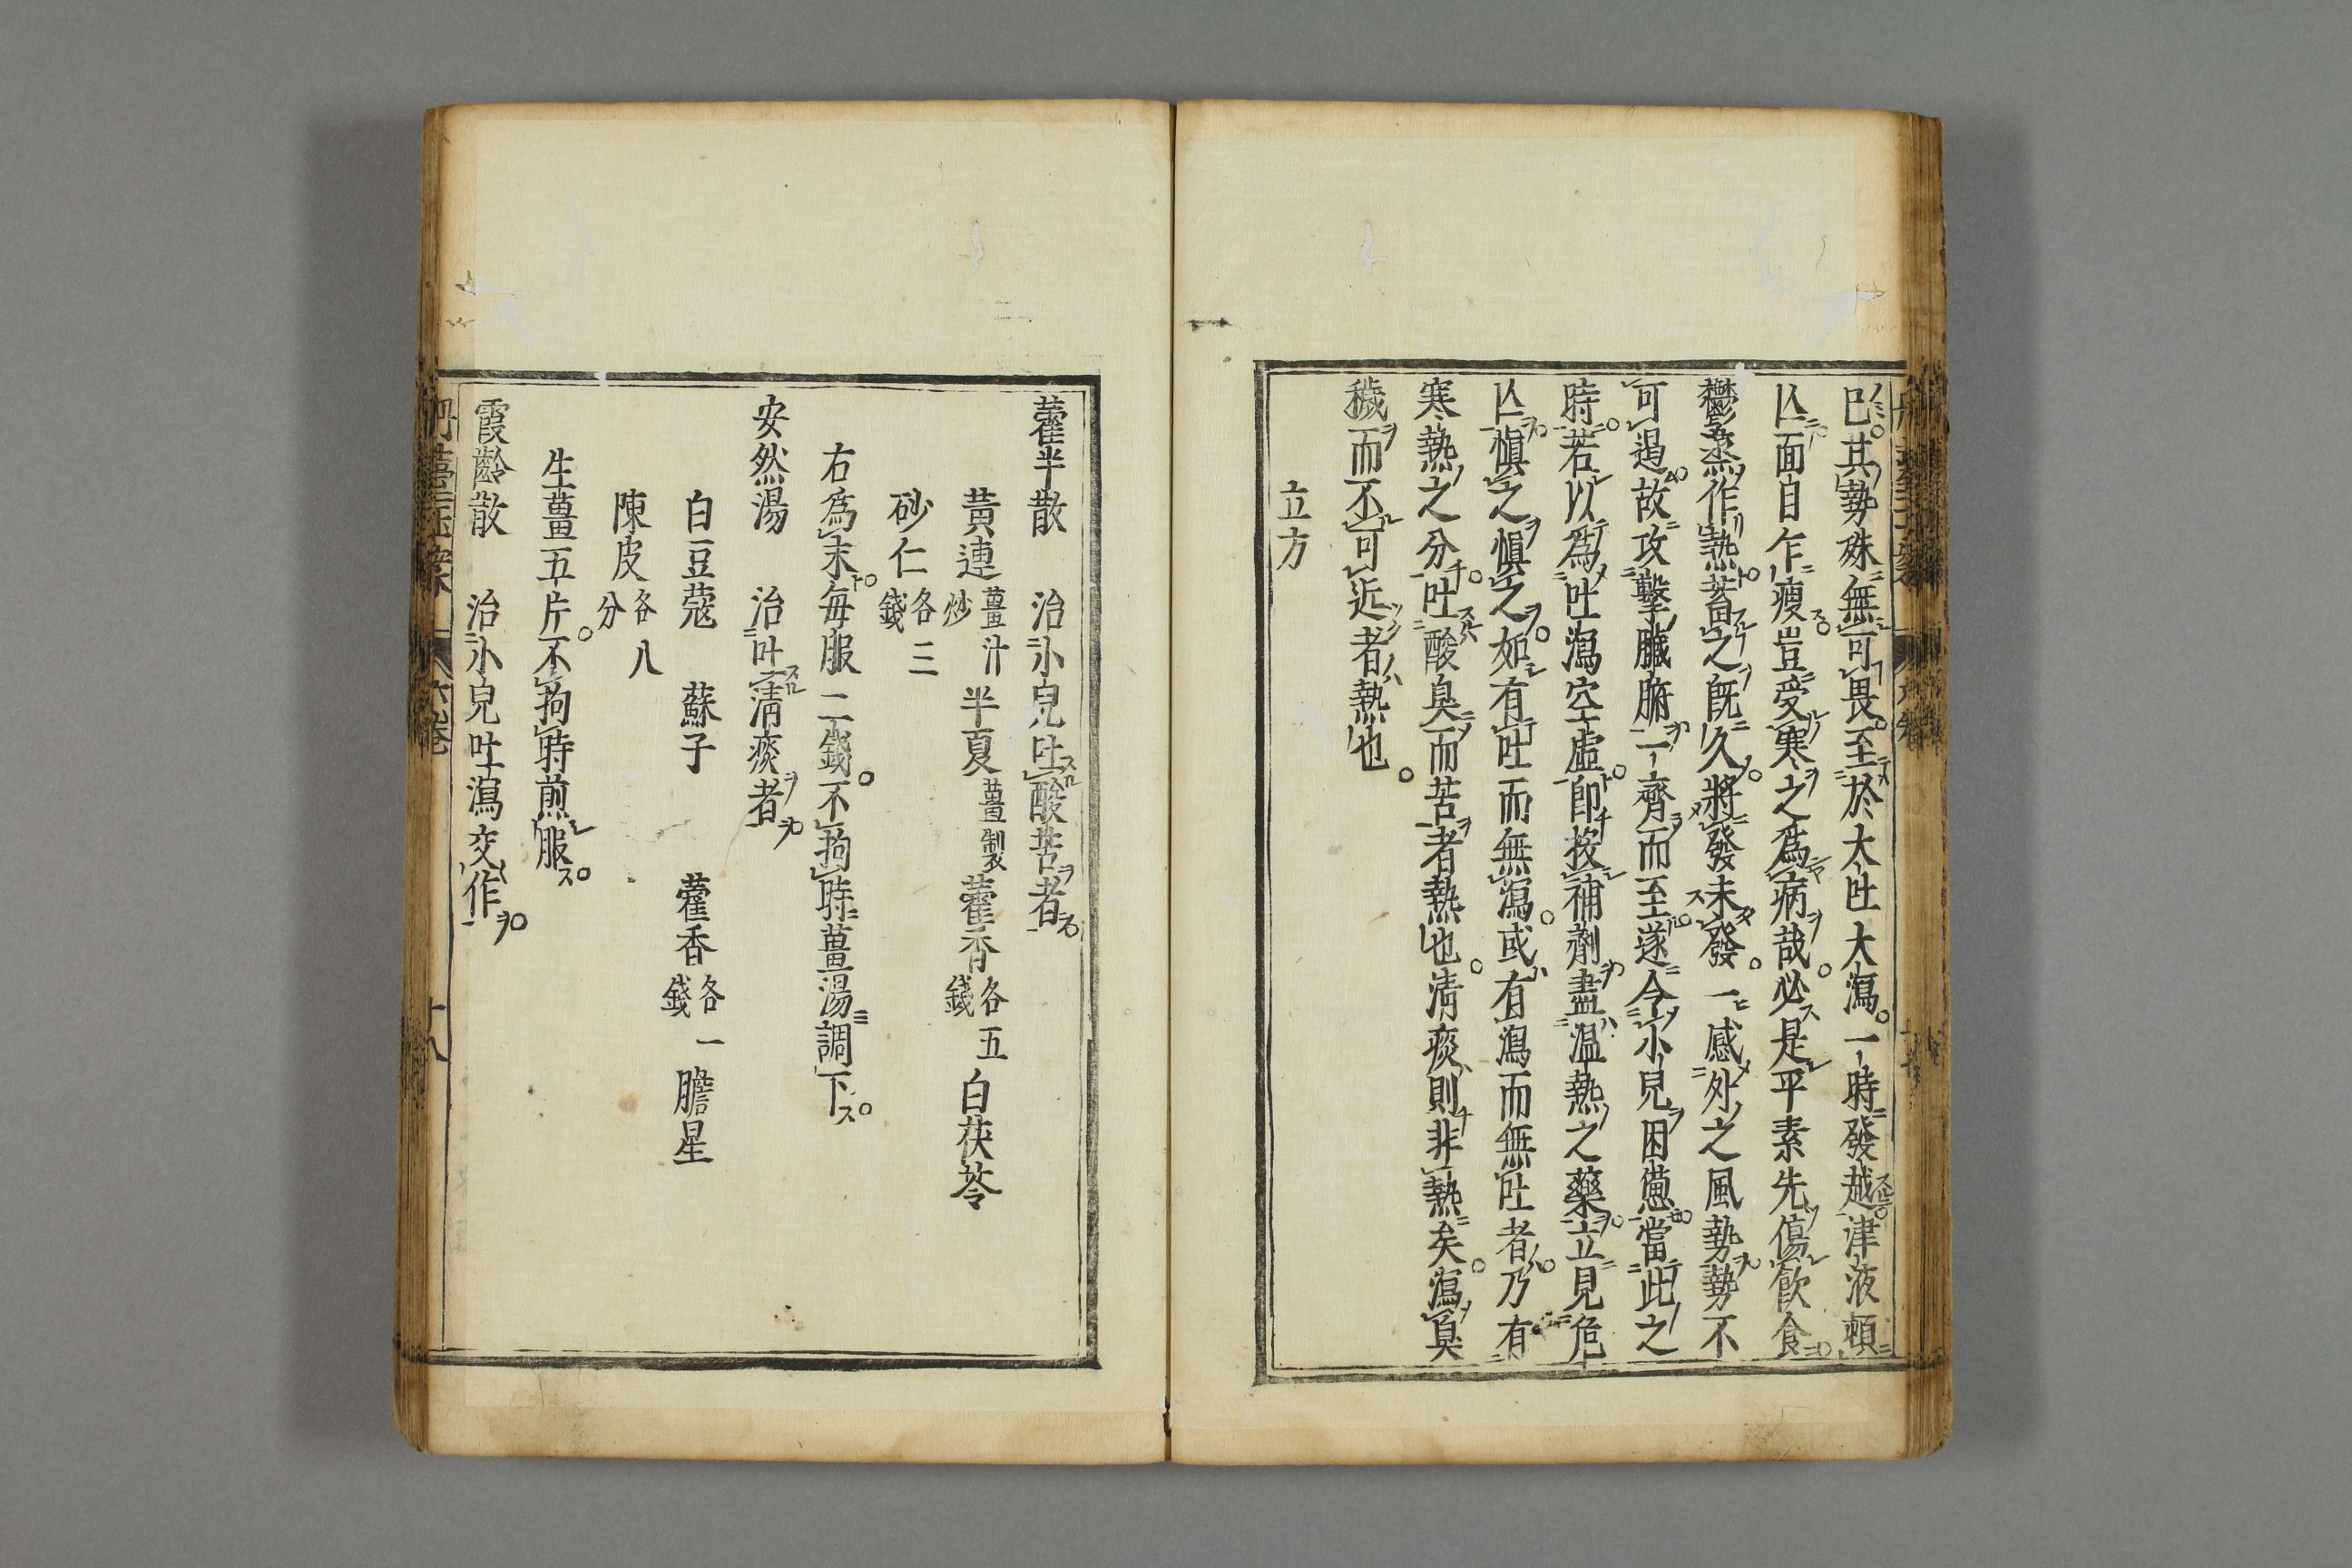 已其勢殊無可畏至於大吐大瀉一時發越津液頓
亾面自乍瘦豈受寒之爲病哉必是平素先傷飮食
鬱蒸作熱蓄之旣久將發未發一感外之風勢勢不
可遏故攻擊臟腑一齊而至遂令小兒困憊當此之
時若以爲吐瀉空虛即按補劑盡温熱之藥立見危
亾愼之愼之如有吐而無瀉或有瀉而無吐者乃有
寒熱之分吐酸臭而苦者熱也淸痰則非熱矣瀉臭
穢而不可近者熱也
立方
藿半散　治小兒吐酸苦者
黃連薑汁炒　半夏薑製　藿香各五錢　白茯苓
砂仁各三錢
右爲末每服二錢不拘時薑湯調下
安然湯　治吐淸痰者
白豆蔻　蘇子　藿香各一錢　膽星
陳皮各八分
生薑五片不拘時煎服
霞齡散　治小兒吐瀉交作
六卷　十八